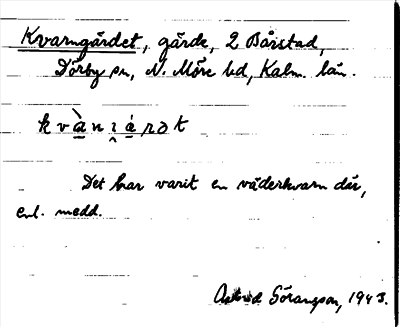 Kvarngärdet, gärde, 2 Bårstad,
Dörby sn, N. Möre hd, Kalm. län.
Det har varit en väderkvarn där,
enl. medd.
Astrid Göransson, 1943.